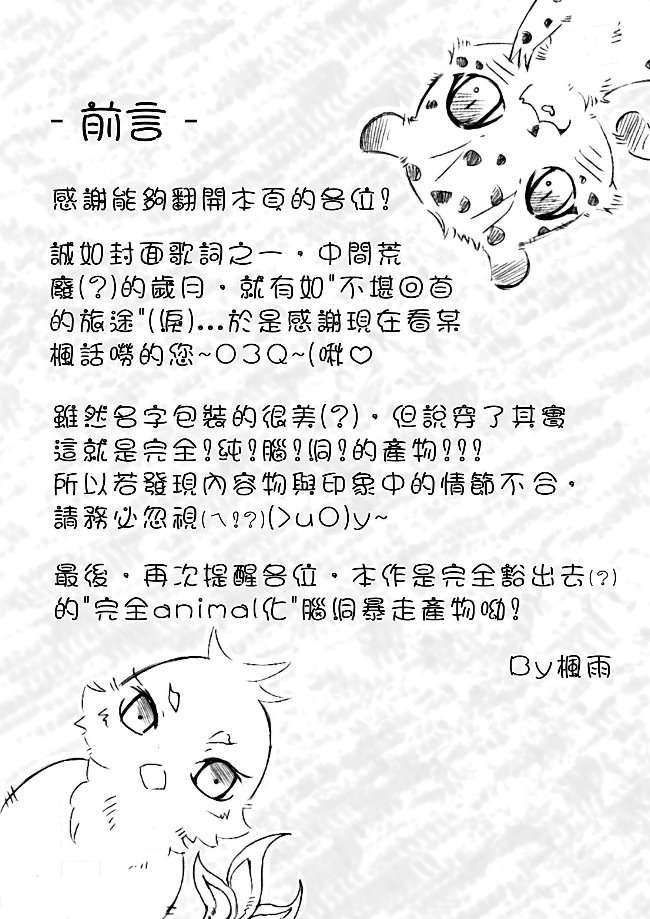 - 前言 -
感謝能夠翻開本頁的各位!
誠如封面歌詞之一，中間荒
廢(?)的歲月，就有如"不堪回首
的旅途"(淚)...於是感謝現在看某
楓話嘮的您~O3Q~(啾♡
雖然名字包裝的很美(?)，但說穿了其實
這就是完全!純!腦!洞!的產物???
所以若發現內容物與印象中的情節不合，
請務必忽視(ㄟ!?)(>uO)y~
最後，再次提醒各位，本作是完全豁出去(?)
的"完全animal化"腦洞暴走產物呦!
By楓雨